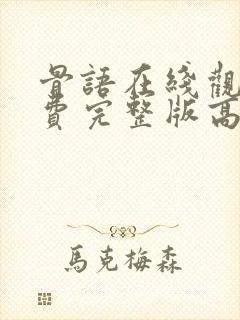 骨語在綫觀
費完整版高
馬克梅森